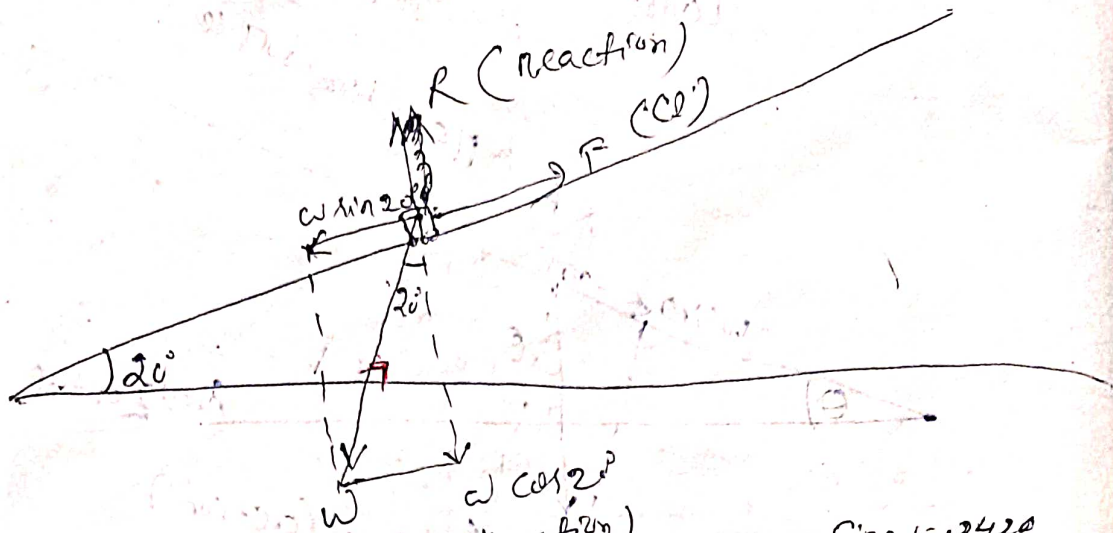 R (reaction)
F
W sin 20°
20°
20°
W
W cos 20°